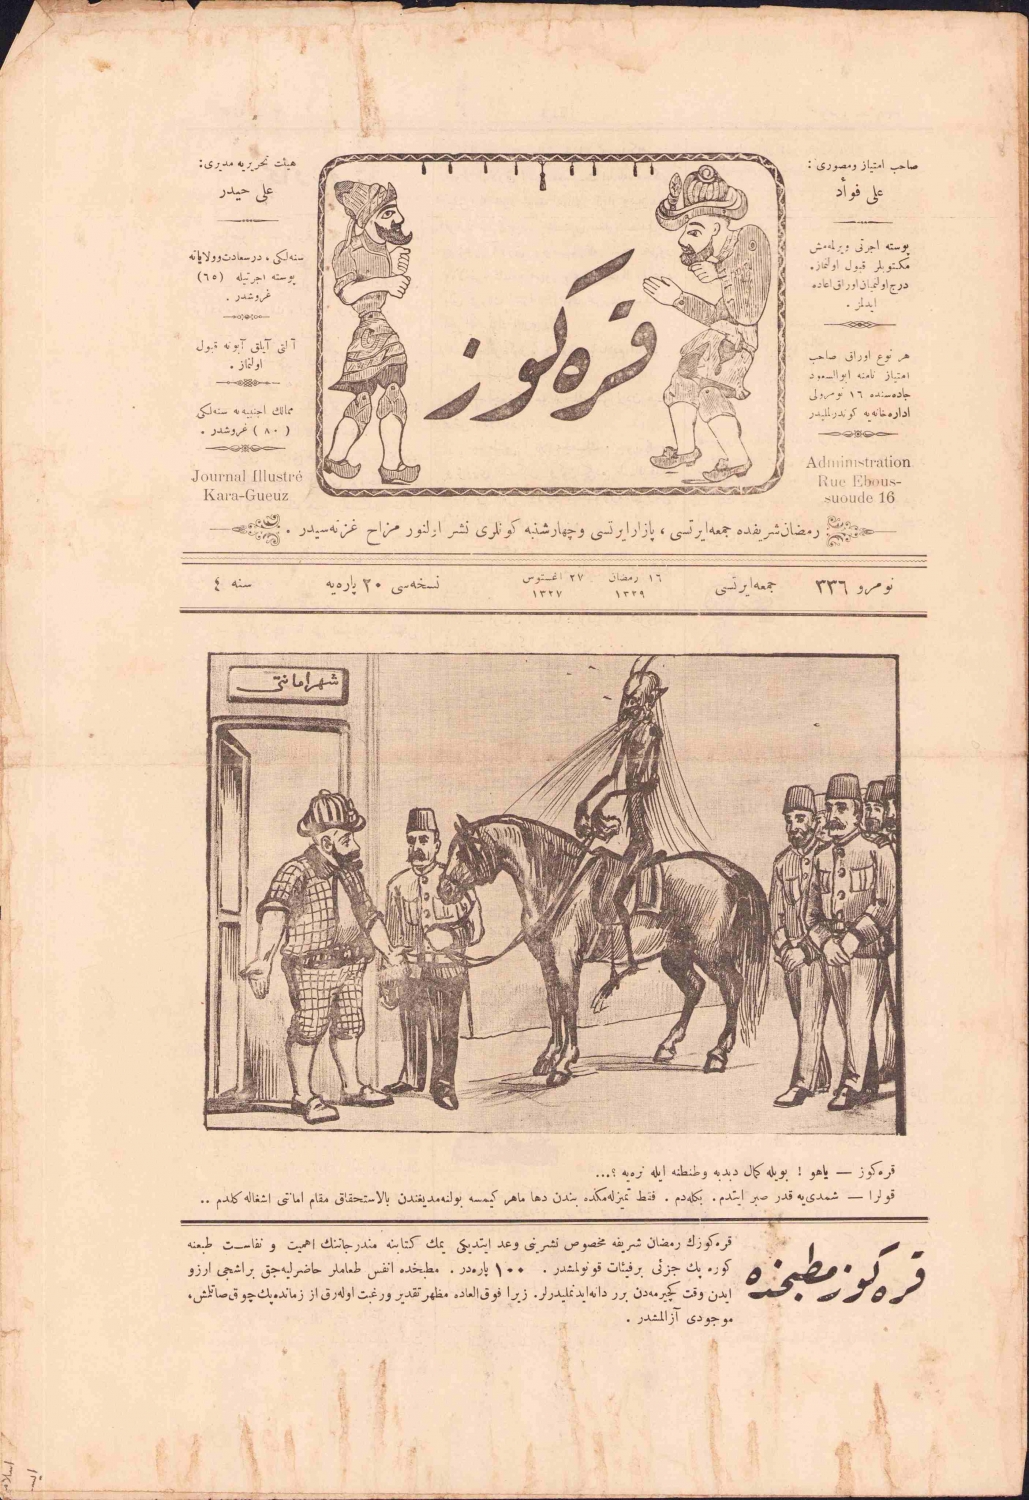 صاحب امتیاز ومصوری :
علی فوأد
پوسته اجرتی ویرلمەمش
مكتوبلر قبول اولنماز.
درج اولنمیان اوراق اعاده
ایدلمز .
هر نوع اوراق صاحب
امتیاز نامنه ابوالسعود
جاده‌سنده ١٦ نومرولی
اداره‌خانه‌یه كوندرلملیدر
Administration
Rue Ebous-
suoude 16
قره كوز
هیئت تحریریه مدیری:
علی حیدر
سنه‌لكی ، درسعادت وولایاته
پوسته اجرتیله (٦٥)
غروشدر .
آلتی آیلق آبونه قبول
اولنماز .
ممالك اجنبیه‌یه سنه‌لكی
( ٨٠ ) غروشدر .
Journal Illustré
Kara-Gueuz
رمضان شریفده جمعه‌ایرتسی ، پازارایرتسی وچهارشنبه كونلری نشر اولنور مزاح غزته‌سیدر .
نومرو ٣٣٦ جمعه‌ایرتسی ١٦ رمضان ١٣٢٩ ٢٧ اغستوس ١٣٢٧ نسخه‌سی ٢٠ پاره‌یه سنه ٤
شهر امانتی
قره‌كوز — یاهو ! بویله كمال دبدبه وطنطنه ایله نره‌یه ؟...
قولرا — شمدی‌یه قدر صبر ایتدم. بكله‌دم . فقط تمیزله‌مكده بندن دها ماهر كیمسه بولنه‌مدیغندن بالاستحقاق مقام امانتی اشغاله كلدم ..
قره كوز مطبخده
قره‌كوزك رمضان شریفه مخصوص نشرینی وعد ایتدیكی یمك كتابنه مندرجاتنك اهمیت و نفاست طبعنه
كوره پك جزئی برفیئات قونولمشدر . ١٠٠ پاره‌در . مطبخده انفس طعاملر حاضرلیه‌جق بر اشجی ارزو
ایدن وقت كچیرمه‌دن برر دانه ایدنملیدرلر. زیرا فوق‌العاده مظهر تقدیر ورغبت اوله‌رق از زمانده پك چوق صاتلمش،
موجودی آزالمشدر .